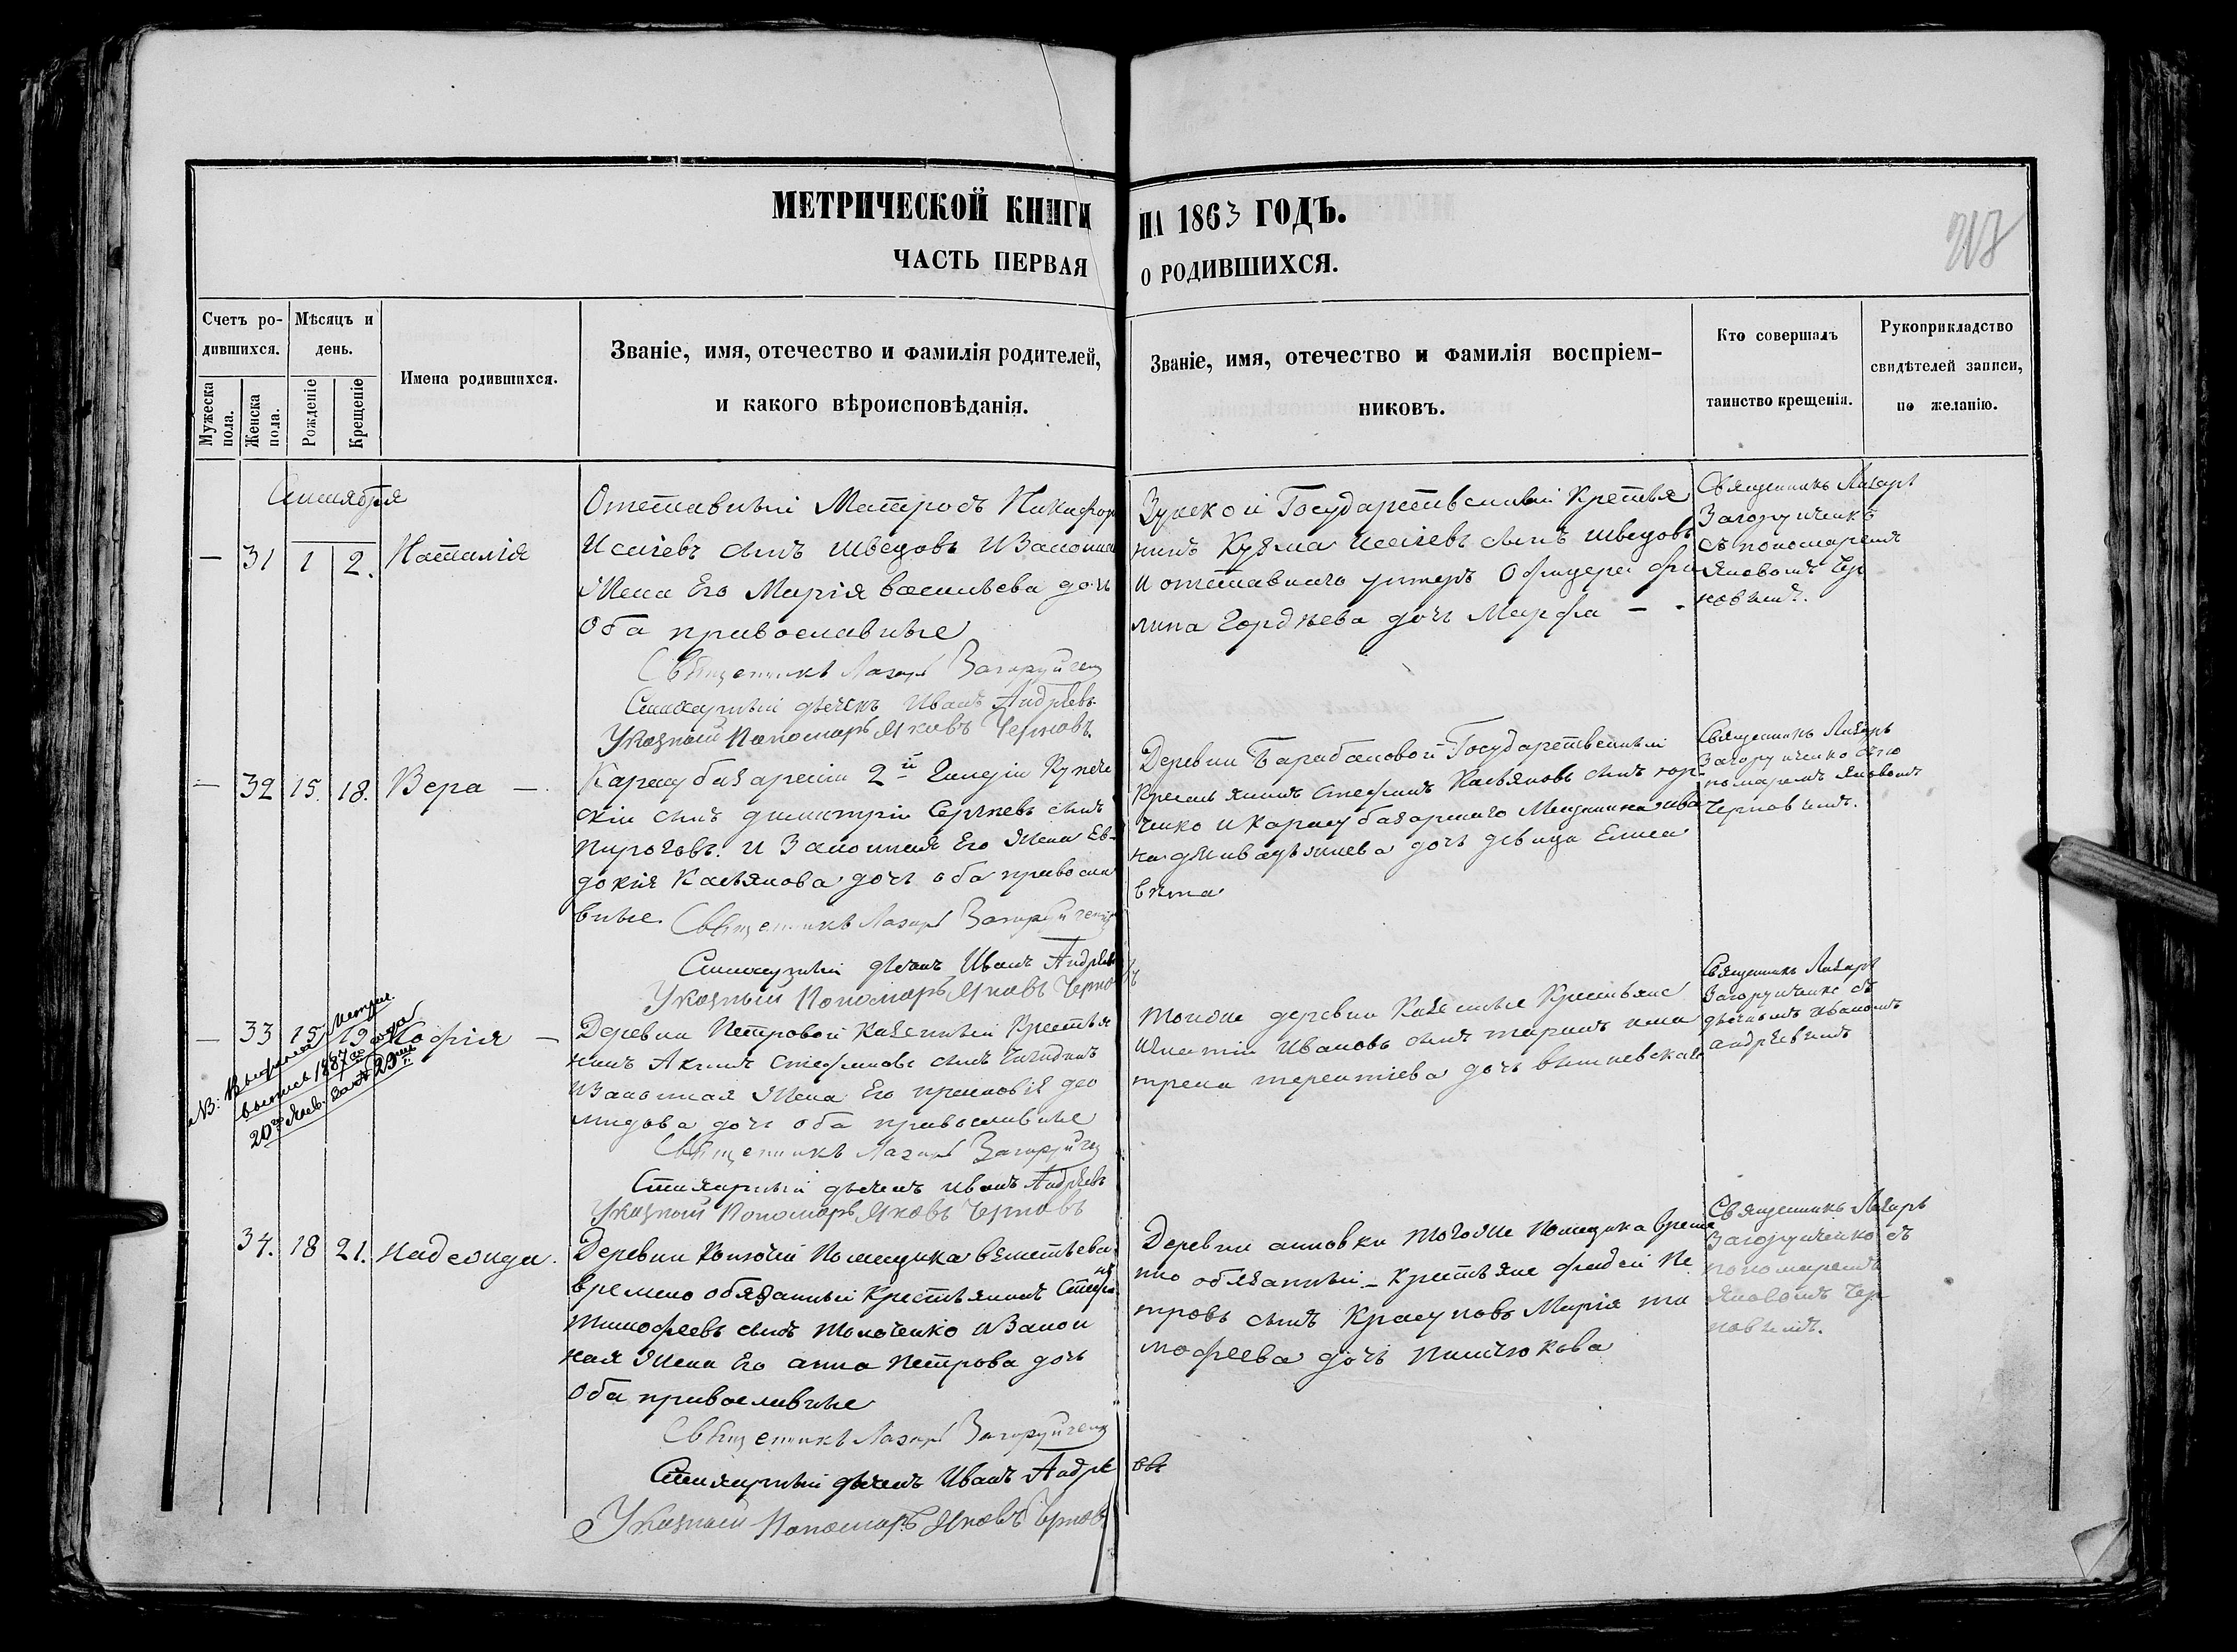 МЕТРИЧЕСКОЙ КНИГИ НА 1863 ГОДЪ.
ЧАСТЬ ПЕРВАЯ О РОДИВШИХСЯ.
Счетъ родившихся.
Мужеска пола.
Женска пола.
Мѣсяцъ и день.
Рожденіе
Крещеніе
Имена родившихся.
Званіе, имя, отечество и фамилія родителей,
и какого вѣроисповѣданія.
Званіе, имя, отечество и фамилія воспріем-
никовъ.
Кто совершалъ
таинство крещенія.
Рукоприкладство
свидѣтелей записи,
по желанію.
Сентября
— 31 1 2. Наталія
Отставный Матросъ Никифоръ
Исаіевъ сынъ Шведовъ И Законная
Жена Его Марія васильева дочь
Оба православные
Священникъ Лазарь Загоруйченко
Стихарный дьячекъ Иванъ Андрѣевъ
Указный Пономарь Яковъ Черновъ.
Государственный крестья
нинъ Кузма Исаіевъ сынъ шведовъ
И отставнаго унтеръ Офицера фи
липа Гордѣева дочь Марфа —
Священникъ Лазарь
Загоруйченко
съ пономаремъ
Яковомъ Чер
новымъ.
— 32 15. 18. Вера —
Карасубазарскій 2й Гильдіи Купече
скій сынъ димитрій Сергѣевъ сынъ
Пироговъ. И Законная Его Жена Ев-
докія Касьянова дочь оба правосла
вные. Священникъ Лазарь Загоруйченко
Стихарный дьячекъ Иванъ Андрѣевъ
Указный Пономарь Яковъ Черновъ
Деревни Барабановой Государственный
Крестьянинъ Стефанъ Касьяновъ сынъ юр
ченко И карасубазарскаго Мещанина ива
на дочь дѣвица Елиса
вѣта
Священникъ Лазарь
Загоруйченко съ по
номаремъ Яковомъ
Черновымъ.
— 33 15 19 Софія —
NB: Выдана Метрич.
выпись 1887го года
20го Янв. за № 23мъ
Деревни Петровой Казенный Крестья
нинъ Акимъ Стефановъ сынъ
И Законная Жена Его
мидова дочь оба православные
Священникъ Лазарь Загоруйченко
Стихарный дьячекъ Иванъ Андрѣевъ
Указный Пономарь Яковъ Черновъ
Тойже деревни Казенные Крестьяне
Игнатій Ивановъ сынъ
трена терентіева дочь вышневская
Священникъ Лазарь
Загоруйченко съ
дьячкомъ Иваномъ
андрѣевымъ
34. 18 21. Надежда.
Деревни Помещика
времено обязанный Крестьянинъ Стефанъ
Тимофеевъ сынъ И Закон
ная Жена Его анна Петрова дочь
Оба православные
Священникъ Лазарь Загоруйченко
Стихарный дьячекъ Иванъ Андрѣевъ
Указный Пономарь Яковъ Черновъ
Деревни анновки тогоже Помещика време
нно обязанный — крестьяне фадей Пе
тровъ сынъ Марія ти
мофеева дочь
Священникъ Лазарь
Загоруйченко съ
пономаремъ
Яковомъ Чер
новымъ.